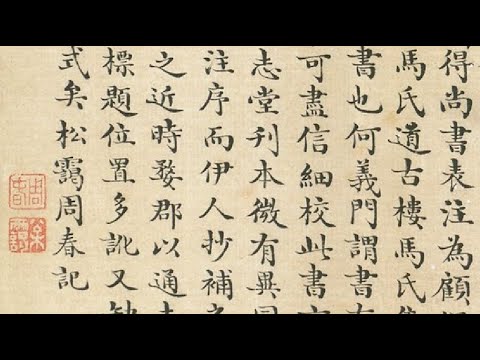 得尚書表注為顧
馬氏道古樓馬氏
書也何義門謂書有
可盡信細校此書
志堂刊本微有異同
注序而伊人抄補
之近時婺郡以通
標題位置多訛又缺
式矣松靄周春記
周春
松靄